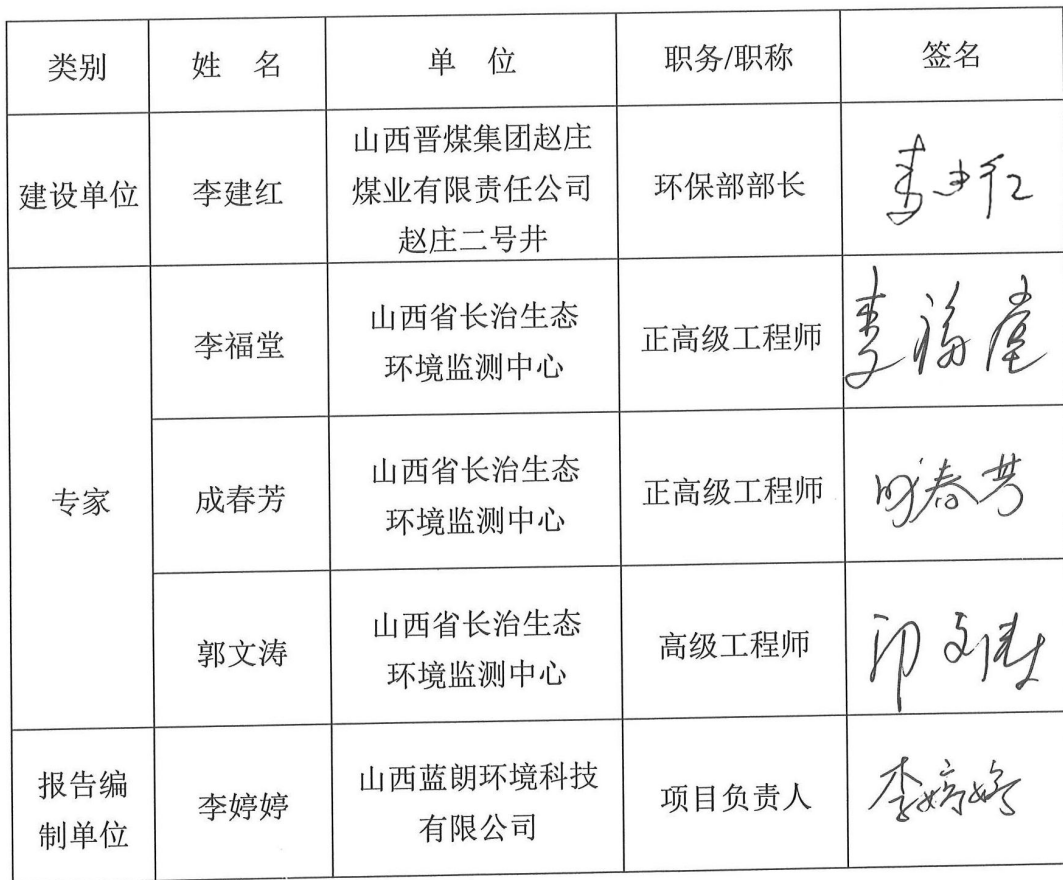 类别 姓 名 单 位 职务/职称 签名
建设单位 李建红 山西晋煤集团赵庄
煤业有限责任公司
赵庄二号井 环保部部长 李建红
专家 李福堂 山西省长治生态
环境监测中心 正高级工程师 李福堂
成春芳 山西省长治生态
环境监测中心 正高级工程师 成春芳
郭文涛 山西省长治生态
环境监测中心 高级工程师 郭文涛
报告编
制单位 李婷婷 山西蓝朗环境科技
有限公司 项目负责人 李婷婷